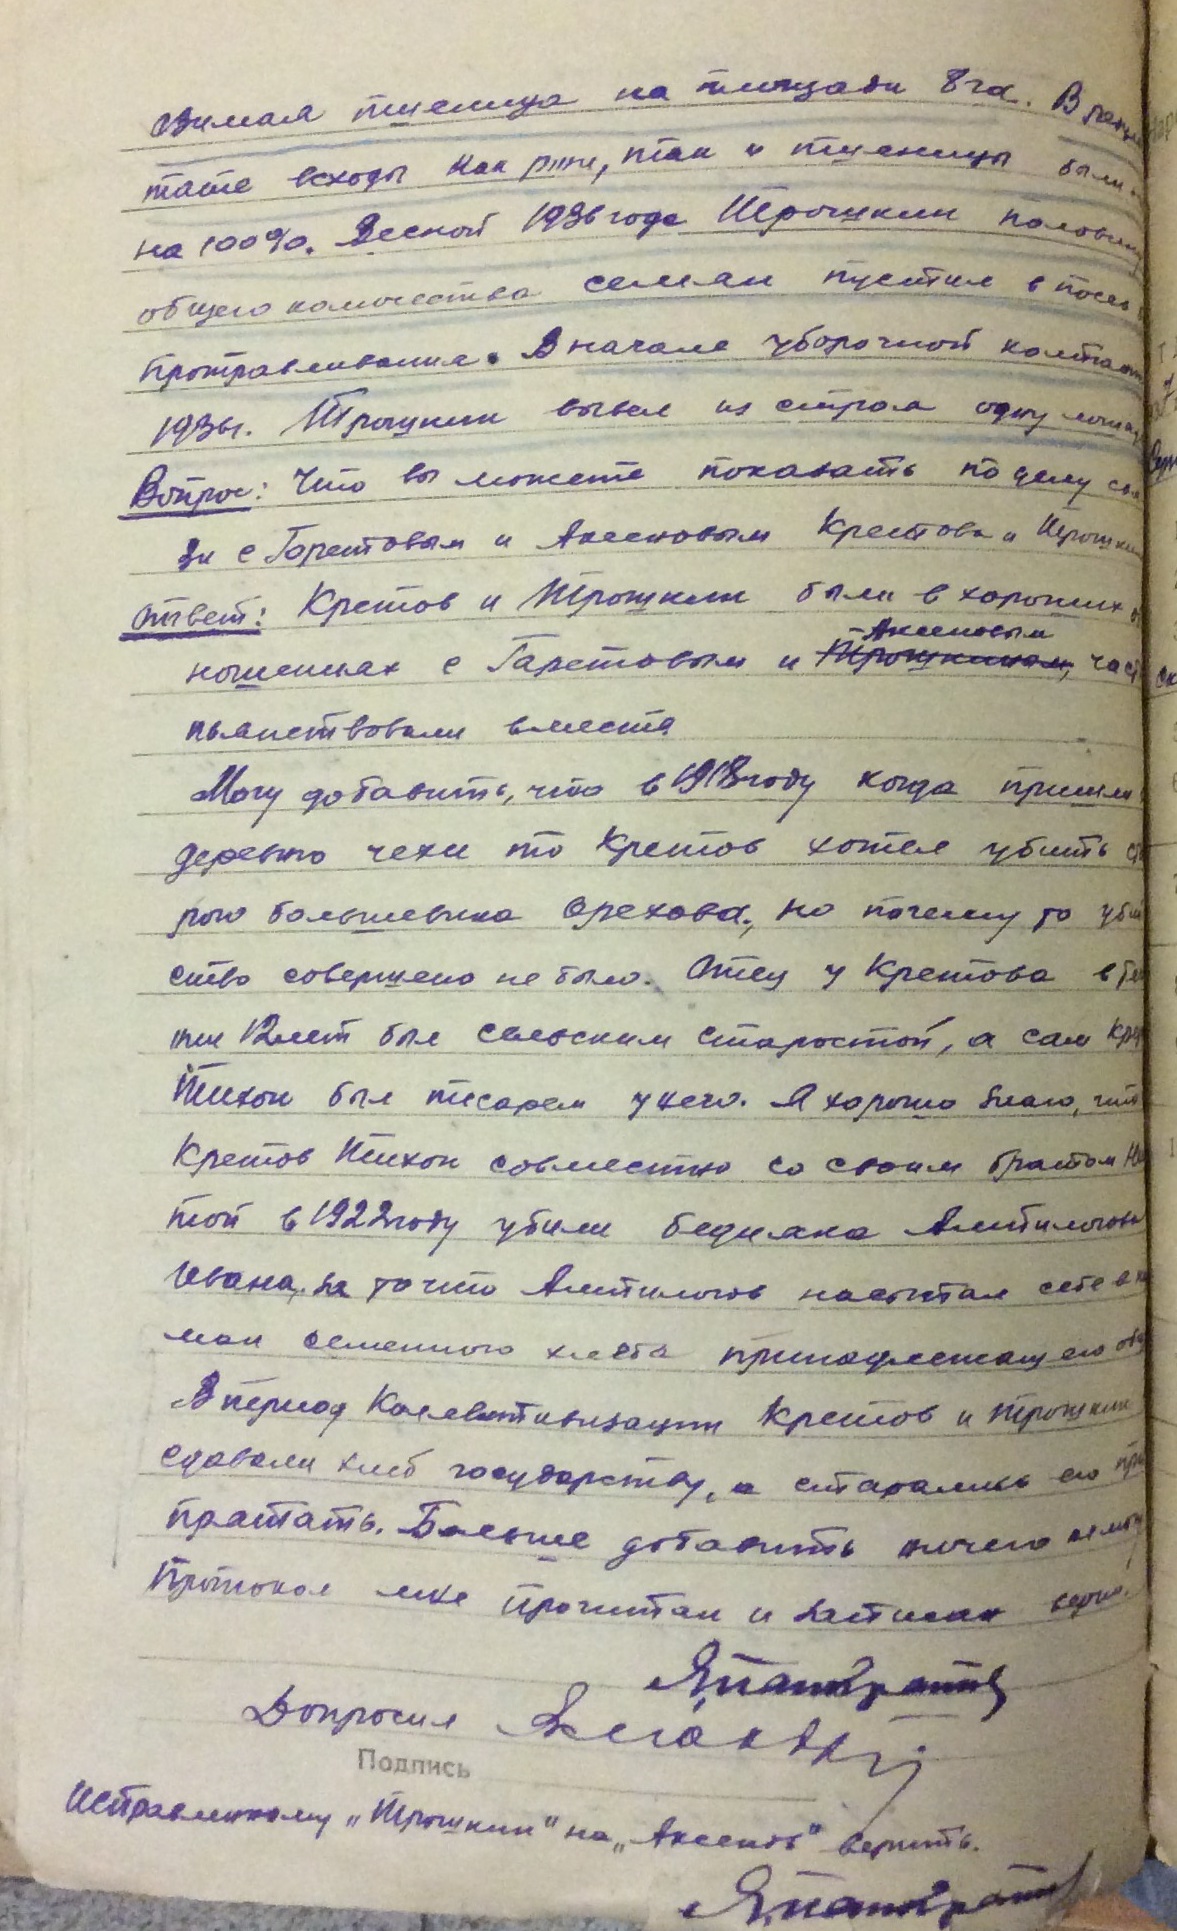 Зимая пшеница на площади 8 га. В резуль
тате всходы как ржи, так и пшеницы были
на 100%. Весной 1936 года Трошкин половину
общего количества семян пустил в посев
протравливания. В начале уборочной кампан
1936 г. Трошкин вывел из строя одну лошад
Вопрос: Что вы можете показать по делу свя
зи с Горетовым и Аксеновым Кретова и Трошкин
Ответ: Кретов и Трошкин были в хороших от
ношениях с Гаретовым и Трошкиным, Аксеновым част
пьянствовали вместе
Могу добавить, что в 1918 году когда пришли
деревню чехи то Кретов хотел убить ста
рого большевика Орехова, но почему то убий
ство совершено не было. Отец у Кретова в те
нии 12 лет был сельским старостой, а сам Крет
Тихон был писарем у него. Я хорошо знаю, что
Кретов Тихон совместно со своим братом Ни
той в 1922 году убили бедняка Антипогова
Ивана, за то что Антипогов насыпал себе в кар
ман семенного хлеба принадлежащего общ
В период Коллективизации Кретов и Трошкин
сдавали хлеб государству, а старались его при
пратать. Больше добавить ничего не могу
Протокол мне прочитан и записан верно.
Допросил
Подпись
Исправленному „Трошкин" на „Аксенов" верить.